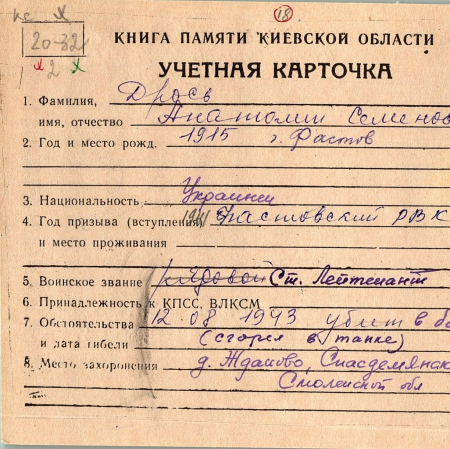 кс х
18
20-32
х 2 х
КНИГА ПАМЯТИ КИЕВСКОЙ ОБЛАСТИ
УЧЕТНАЯ КАРТОЧКА
1. Фамилия, Дрось
имя, отчество Анатолий Семенов
2. Год и место рожд. 1915 г. Фастов
3. Национальность Украинец
4. Год призыва (вступления) 1941 Фастовский РВК
и место проживания
5. Воинское звание рядовой Ст. Лейтенант
6. Принадлежность к КПСС, ВЛКСМ
7. Обстоятельства 12.08.1943 убит в бо
и дата гибели (сгорел в танке)
8. Место захоронения д. Жданово, Спасдемянск
Смоленской обл